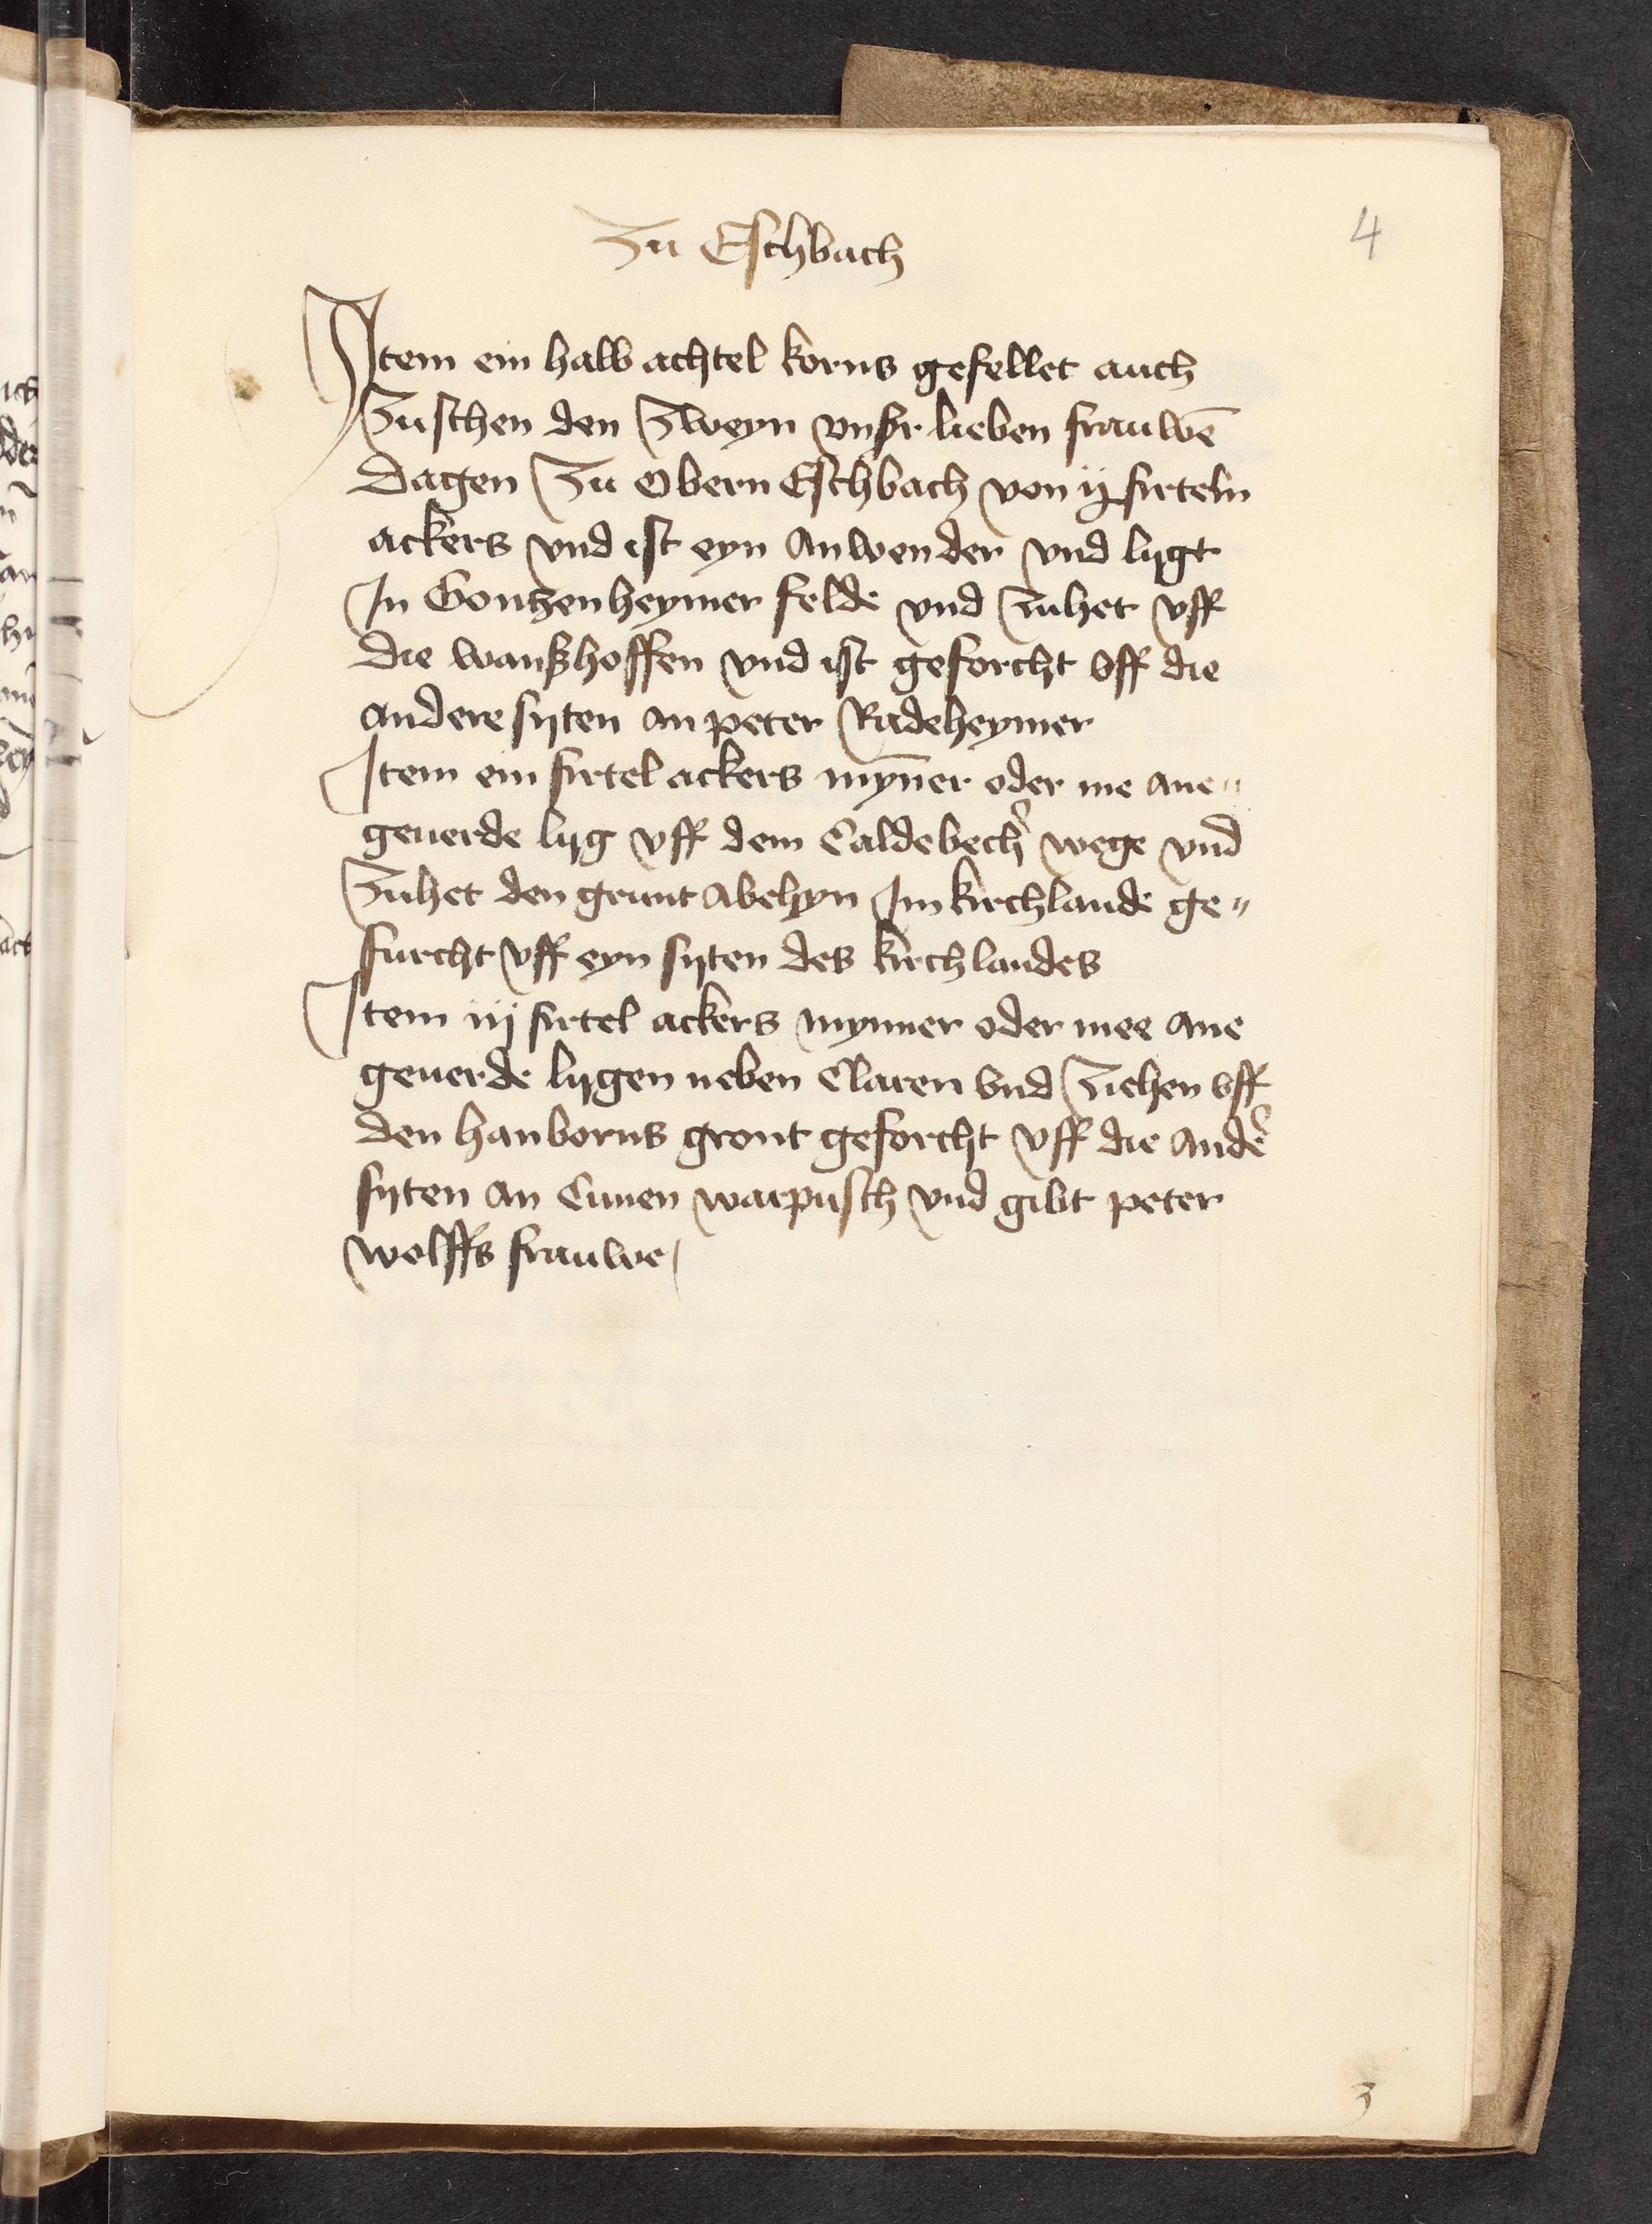 4
Zu Eschbach
Item ein halb achtel korns gefellet auch
Zuschen den Zweyn vnßr lieben frauwē
dagen Zu Obern Eschbach von ij firteln
ackers vnd ist eyn Anwender vnd lijgt
In Gontzenheymer felde vnd Zuhet vff
die wanßhoffen vnd ist geforcht vff die
andere sijten an peter Radeheymer
Item ein firtel ackers mȳner oder me ane"
geuerde lijg vff dem Caldebech' wege vnd
Zuhet den grunt Abehyn Im kirchlande ge"
furcht vff eyn sijten des kirchlandes
Item iij firtel ackers mynner oder mee ane
geuerde lijgen neben Claren vnd Ziehen vff
den hanborns gront geforcht vff die ande'
sijten an Cunen warpusch vnd gibt peter
wolffs frauwe
3